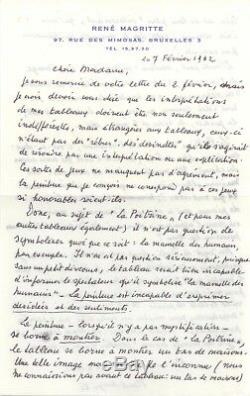 RENÉ MAGRITTE
97, RUE DES MIMOSAS, BRUXELLES 3
TÉL. 15.97.30
le 7 Février 1962
Chère Madame,
Je vous remercie de votre lettre du 2 février, mais
je dois devoir vous dire que les interprétations
de mes tableaux doivent être non seulement
indifférentes, mais étrangères aux tableaux, ceux-ci
n'étant pas des "rébus", des devinettes qu'il s'agirait
de résoudre par une interprétation ou une explication.
Ces sortes de jeux ne manquent pas d'agrément, mais
la peinture que je conçois ne correspond pas à ces jeux
si honorables soient-ils.
Donc, au sujet de "La Poitrine", (et pour mes
autres tableaux également) : il n'est pas question de
symboliser quoi que ce soit : la mamelle des humains,
par exemple. Il n'en est pas question sérieusement, puisque
sans un petit discours, le tableau serait bien incapable
d'informer le spectateur qu'il symbolise "la mamelle des
humains" – La peinture est incapable d'exprimer
des idées et des sentiments.
La peinture – lorsqu'il n'y a pas mystification –
se borne à montrer. Dans le cas de "La Poitrine",
le tableau se borne à montrer un tas de maisons.
Une telle image l'inconnu (nous
ne connaissions pas avant ce tableau : un tas de maisons)